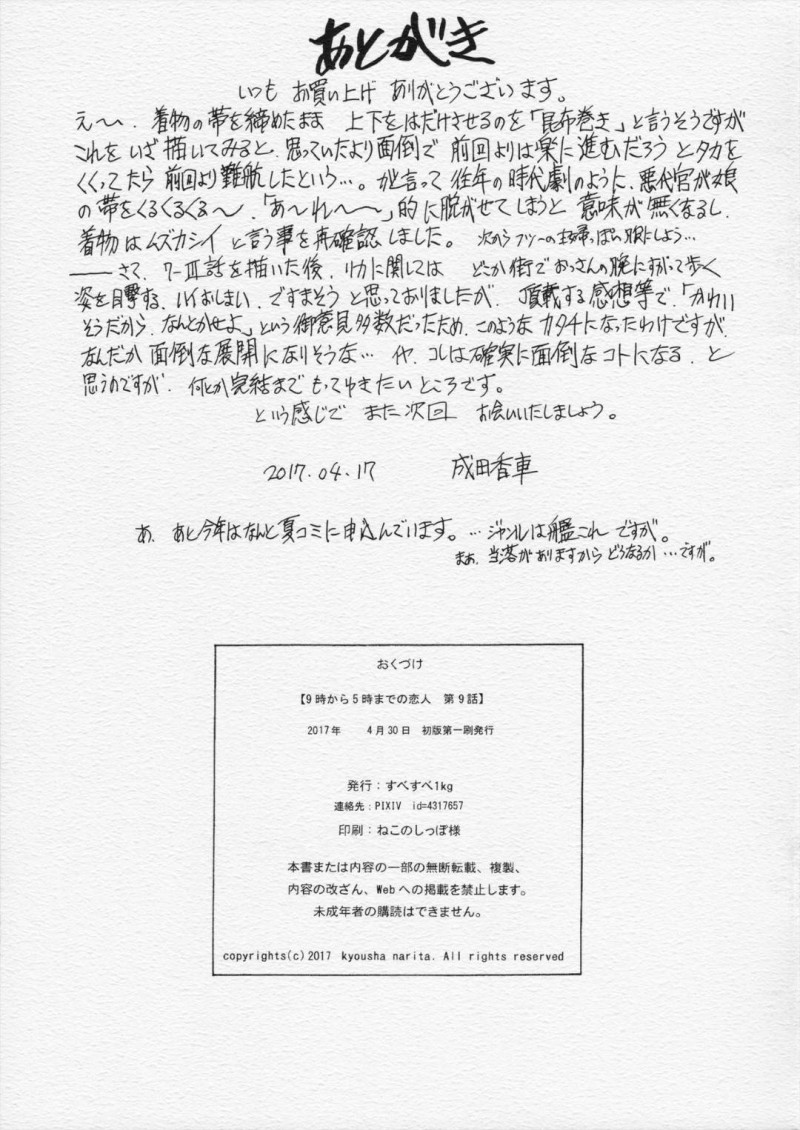 あとがき
いつも お買い上げ ありがとうございます。
え〜、着物の帯を締めたまま 上下をはだけさせるのを「昆布巻き」と言うそうですが
これを いざ 描いてみると、思っていたより面倒で 前回よりは楽に進むだろう とタカを
くくってたら 前回より難航したという…。かと言って 往年の時代劇のように、悪代官が娘
の帯をくるくるくる〜、「あ〜れ〜〜」的に脱がせてしまうと 意味が無くなるし、
着物はムズカシイ と言う事を再確認しました。 次からフツーの主婦っぽい服にしよう…
――さて、7-Ⅲ話を描いた後、リカに関しては どこか街でおっさんの腕にすがって歩く
姿を目撃する、ハイおしまい、ですまそう と思っておりましたが、頂戴する感想等で、「かわい
そうだから、なんとかせよ」という御意見多数だったため、このような カタチになったわけですが、
なんだか 面倒な展開になりそうな… イヤ、コレは確実に面倒なコトになる、と
思うのですが、何とか完結まで もってゆきたいところです。
という感じで また次回 お会いいたしましょう。
2017.04.17 成田香車
あ、あと今年はなんと夏コミに申込んでいます。…ジャンルは艦これ ですが。
まぁ、当落がありますから どうなるか…ですが。
おくづけ
【9時から5時までの恋人 第9話】
2017年 4月30日 初版第一刷発行
発行：すべすべ1kg
連絡先：PIXIV id=4317657
印刷：ねこのしっぽ様
本書または内容の一部の無断転載、複製、
内容の改ざん、Webへの掲載を禁止します。
未成年者の購読はできません。
copyrights(c)2017 kyousha narita. All rights reserved